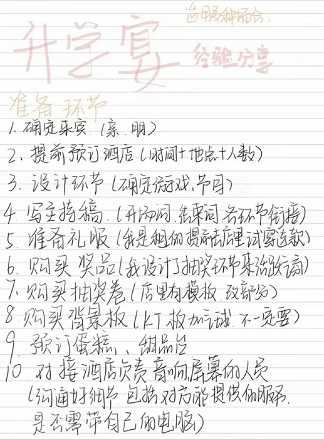 适用各种宴会
升学宴
经验分享
准备环节
1.确定来宾(亲.朋)
2.提前预订酒店(时间+地点+人数)
3.设计环节(确定游戏.节目)
4.写主持稿.(开场词.结束词.各环节衔接)
5.准备礼服(我是租的提前去店里试穿选款)
6.购买奖品(我设计了抽奖环节来活跃气氛)
7.购买抽奖卷(店里有模板 改部分)
8.购买背景板(KT板
9.预订蛋糕、甜品台
10.对接酒店负责音响屏幕的人员
(沟通好细节包括对方能提供的服务.
是否需带自己的电脑)